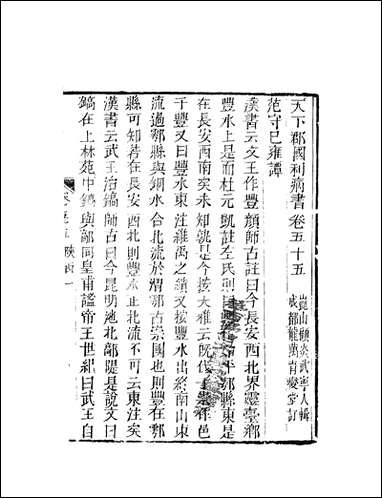 天下郡國利病書卷五十五
崑山顧炎武寧人輯
成都龍萬育燮堂訂
范守己雍譚
漢書云文王作豐顏師古註曰今長安西北界靈臺鄉
豐水上是而杜元凱註左氏則曰豐在鄠縣東是
在長安西南矣未知孰是今按大雅云既伐于崇作邑
于豐又曰豐水東注維禹之績又按豐水出終南山東
流過鄠縣與鎬水合北流於渭鄠古崇國也則豐在鄠
縣可知若在長安西北則豐水正北流不可云東注矣
漢書云武王治鎬師古曰今昆明池北鎬陂是說文曰
鎬在上林苑中鎬與鄗同皇甫謐帝王世紀曰武王自
卷五十五陝西一